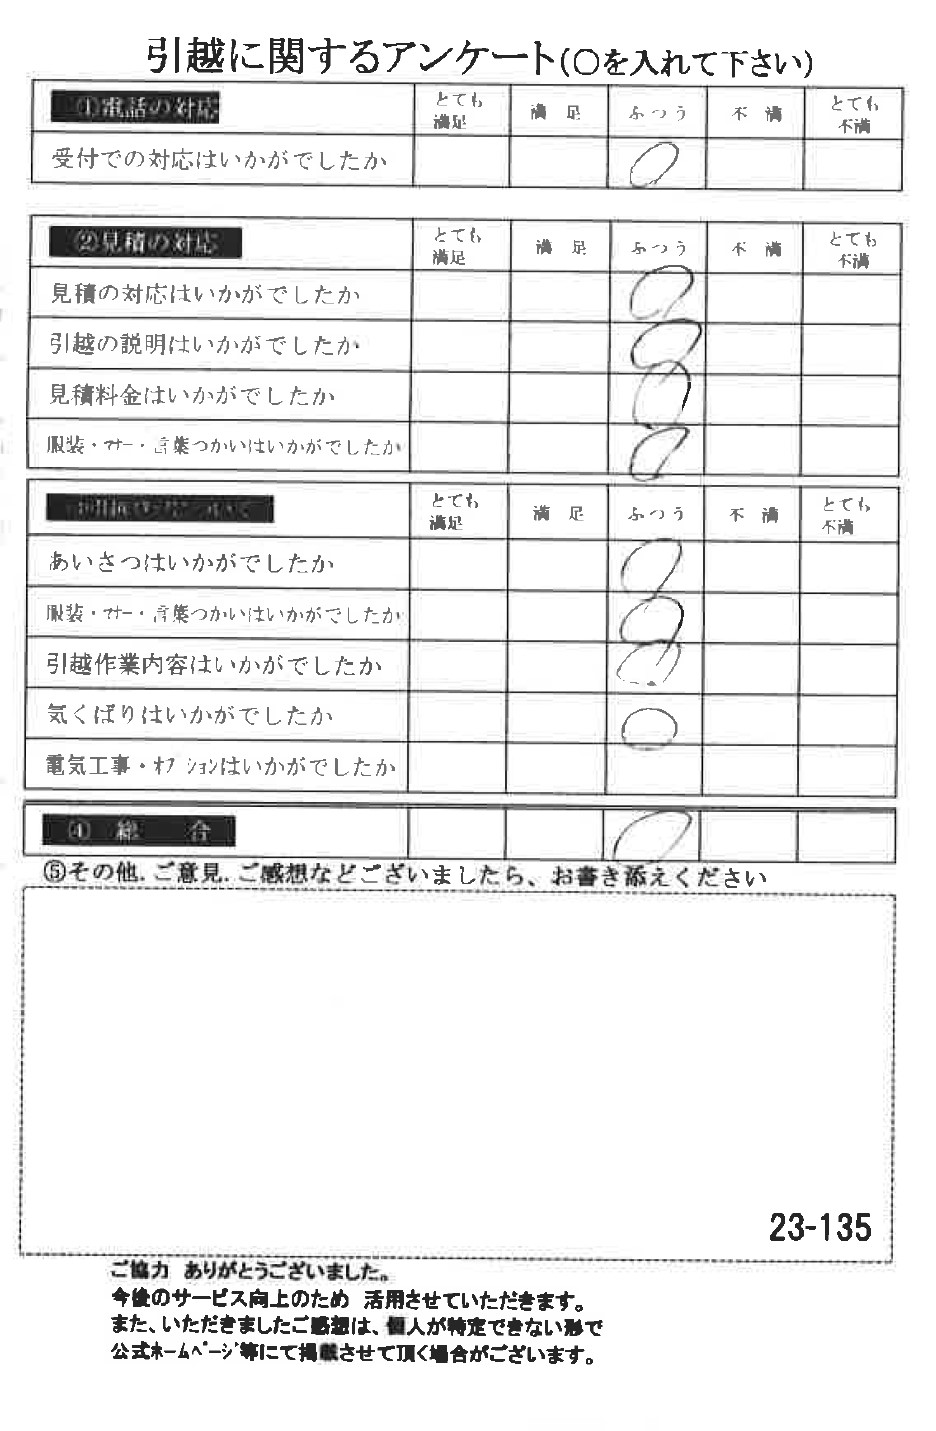 引越に関するアンケート(○を入れて下さい)
①電話の対応 とても満足 満 足 ふつう 不 満 とても不満
受付での対応はいかがでしたか
②見積の対応 とても満足 満 足 ふつう 不 満 とても不満
見積の対応はいかがでしたか
引越の説明はいかがでしたか
見積料金はいかがでしたか
服装・マナー・言葉つかいはいかがでしたか
とても満足 満 足 ふつう 不 満 とても不満
あいさつはいかがでしたか
服装・マナー・言葉つかいはいかがでしたか
引越作業内容はいかがでしたか
気くばりはいかがでしたか
電気工事・オプションはいかがでしたか
④ 総 合
⑤その他.ご意見.ご感想などございましたら、お書き添えください
23-135
ご協力 ありがとうございました。
今後のサービス向上のため 活用させていただきます。
また、いただきましたご感想は、個人が特定できない形で
公式ホームページ等にて掲載させて頂く場合がございます。